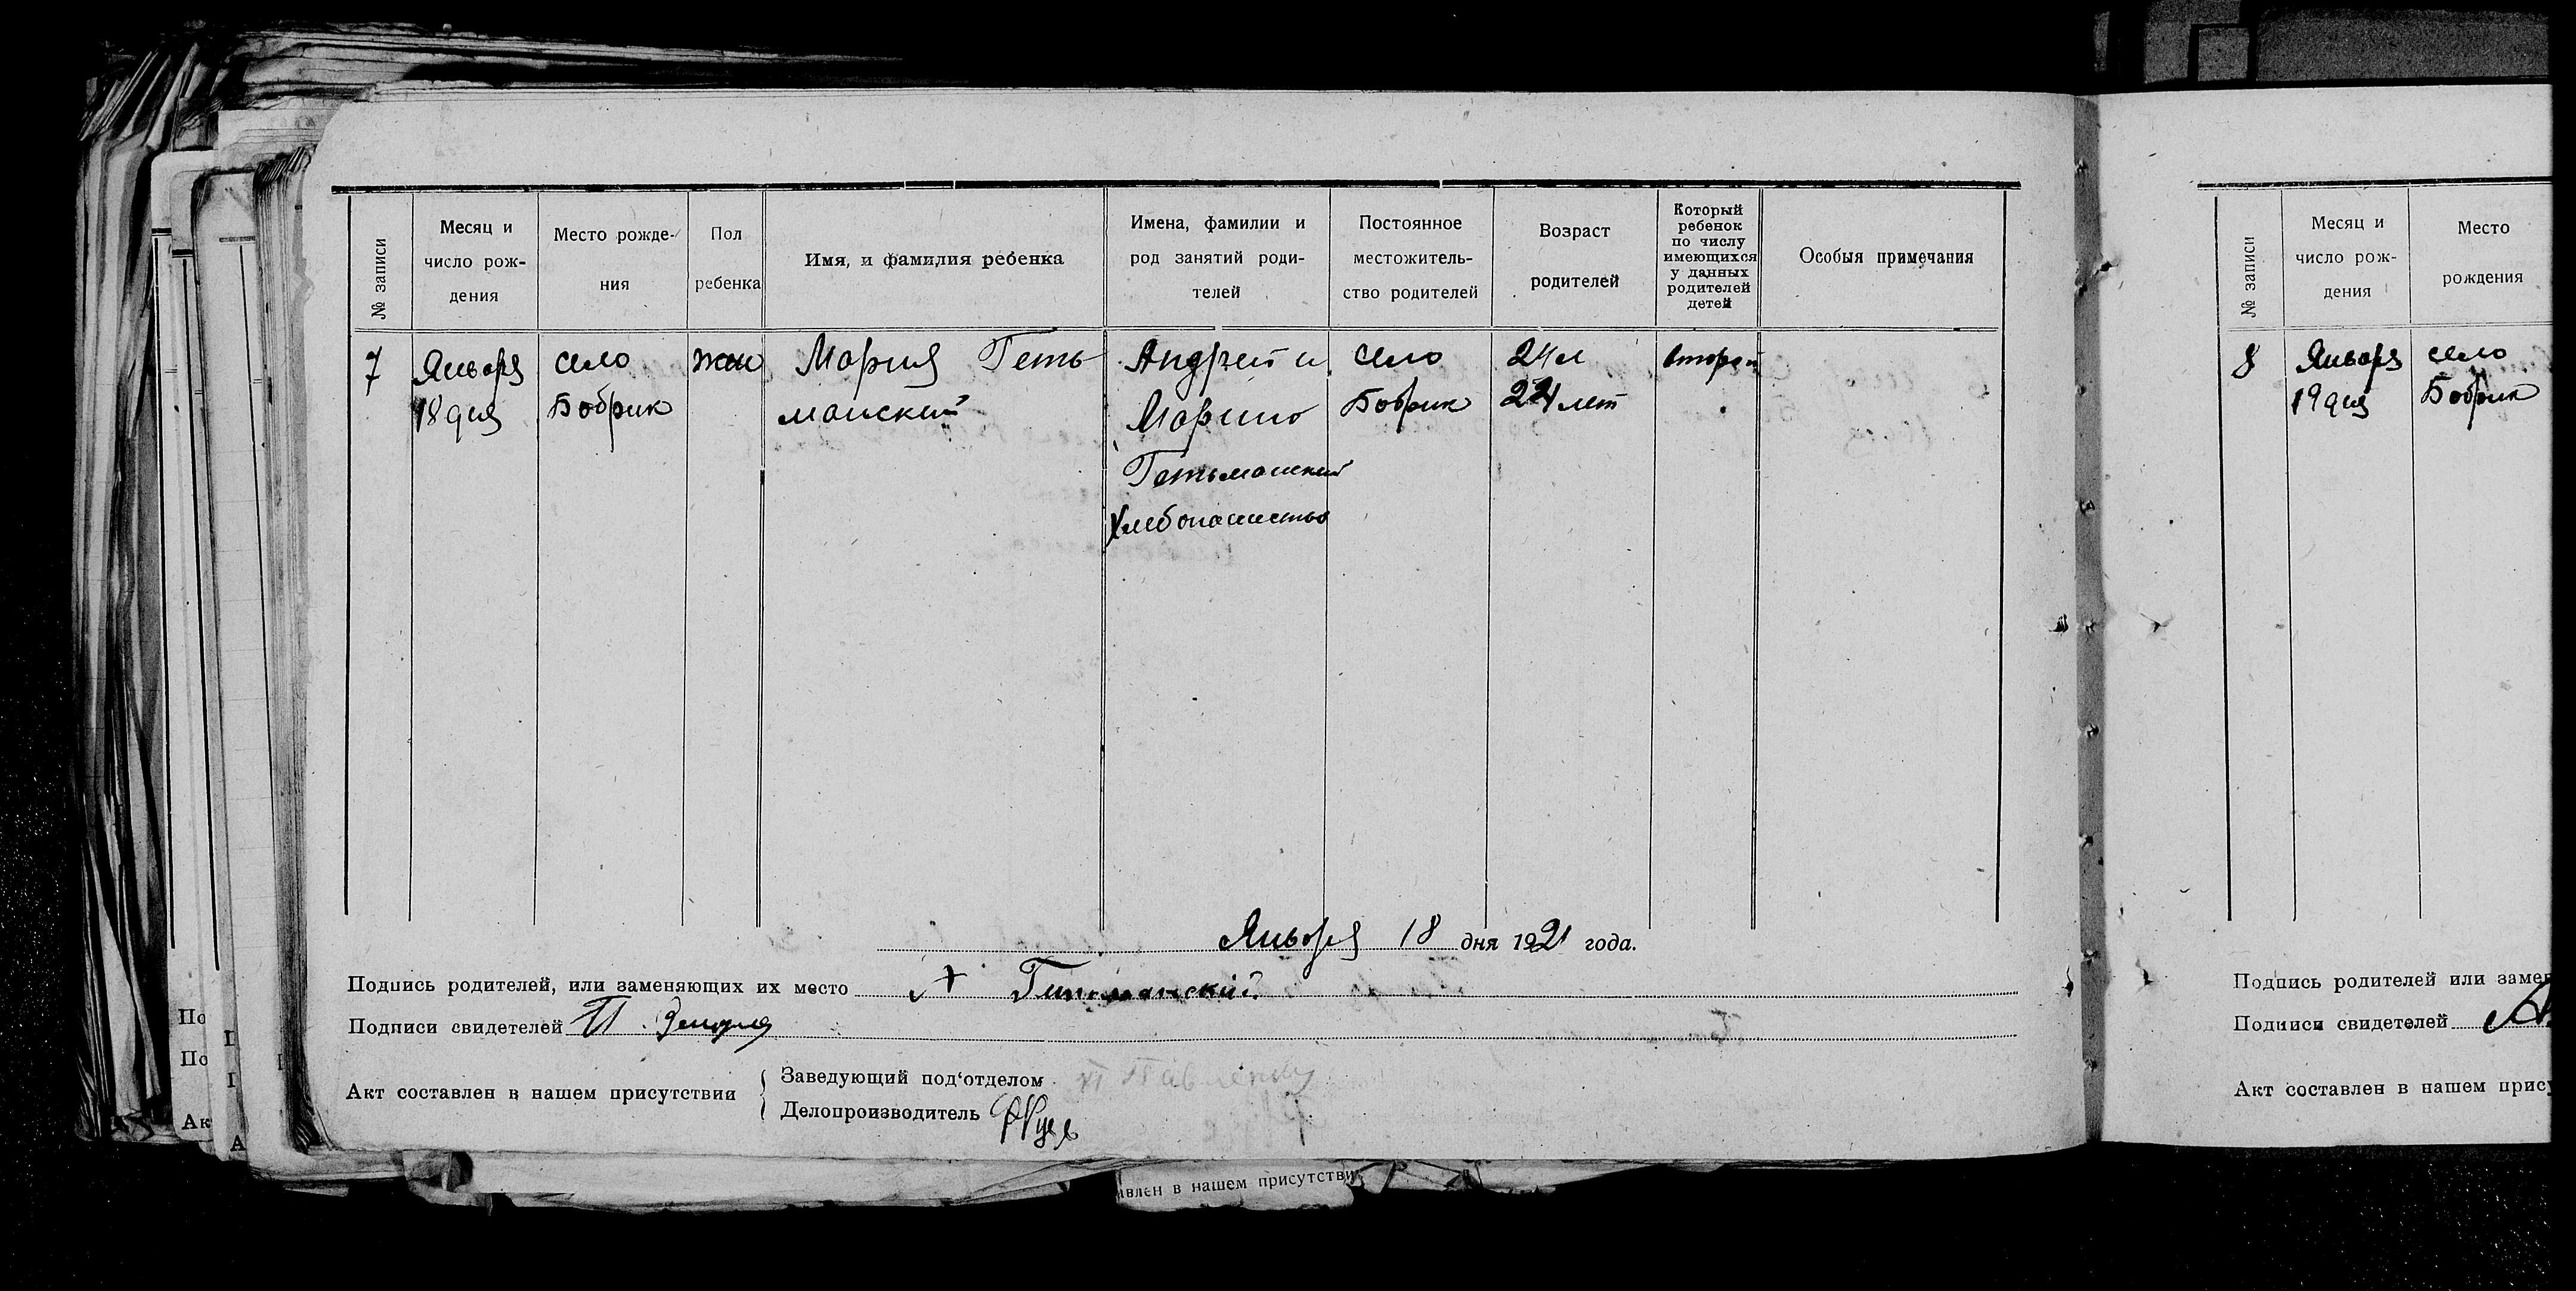 № записи
Месяц и число рож-дения
Место рожде-ния
Пол ребенка
Имя, и фамилия ребенка
Имена, фамилии и род занятий роди-телей
Постоянное местожитель-ство родителей
Возраст родителей
Который ребенок по числу имеющихся у данных родителей детей
Особыя примечания
7
Январь
18 дня
село
Бобрик
жен
Мария Геть
манский
Андрей и
Марино
Гетьманский
Хлебопашество
село
Бобрик
24 л
24 лет
второй
Январь 18 дня 1921 года.
Подпись родителей, или заменяющих их место А Гитманский
Подписи свидетелей П.
Акт составлен в нашем присутствии
Заведующий под‘отделом
Делопроизводитель
№ записи
Месяц и число рож-дения
Место рождения
8
Январь
19 дня
село
Бобрик
Подпись родителей или замен
Подписи свидетелей А
Акт составлен в нашем прису
По
По
Ак
А
авлен в нашем присутстви